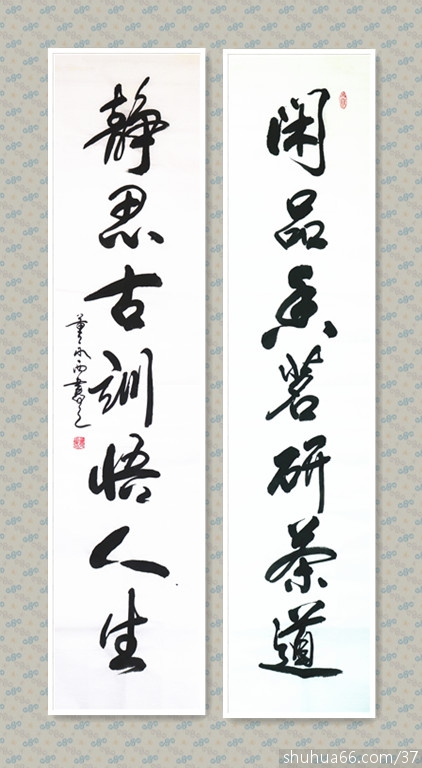 闲品香茗研茶道
静思古训悟人生
shuhua66.com/37